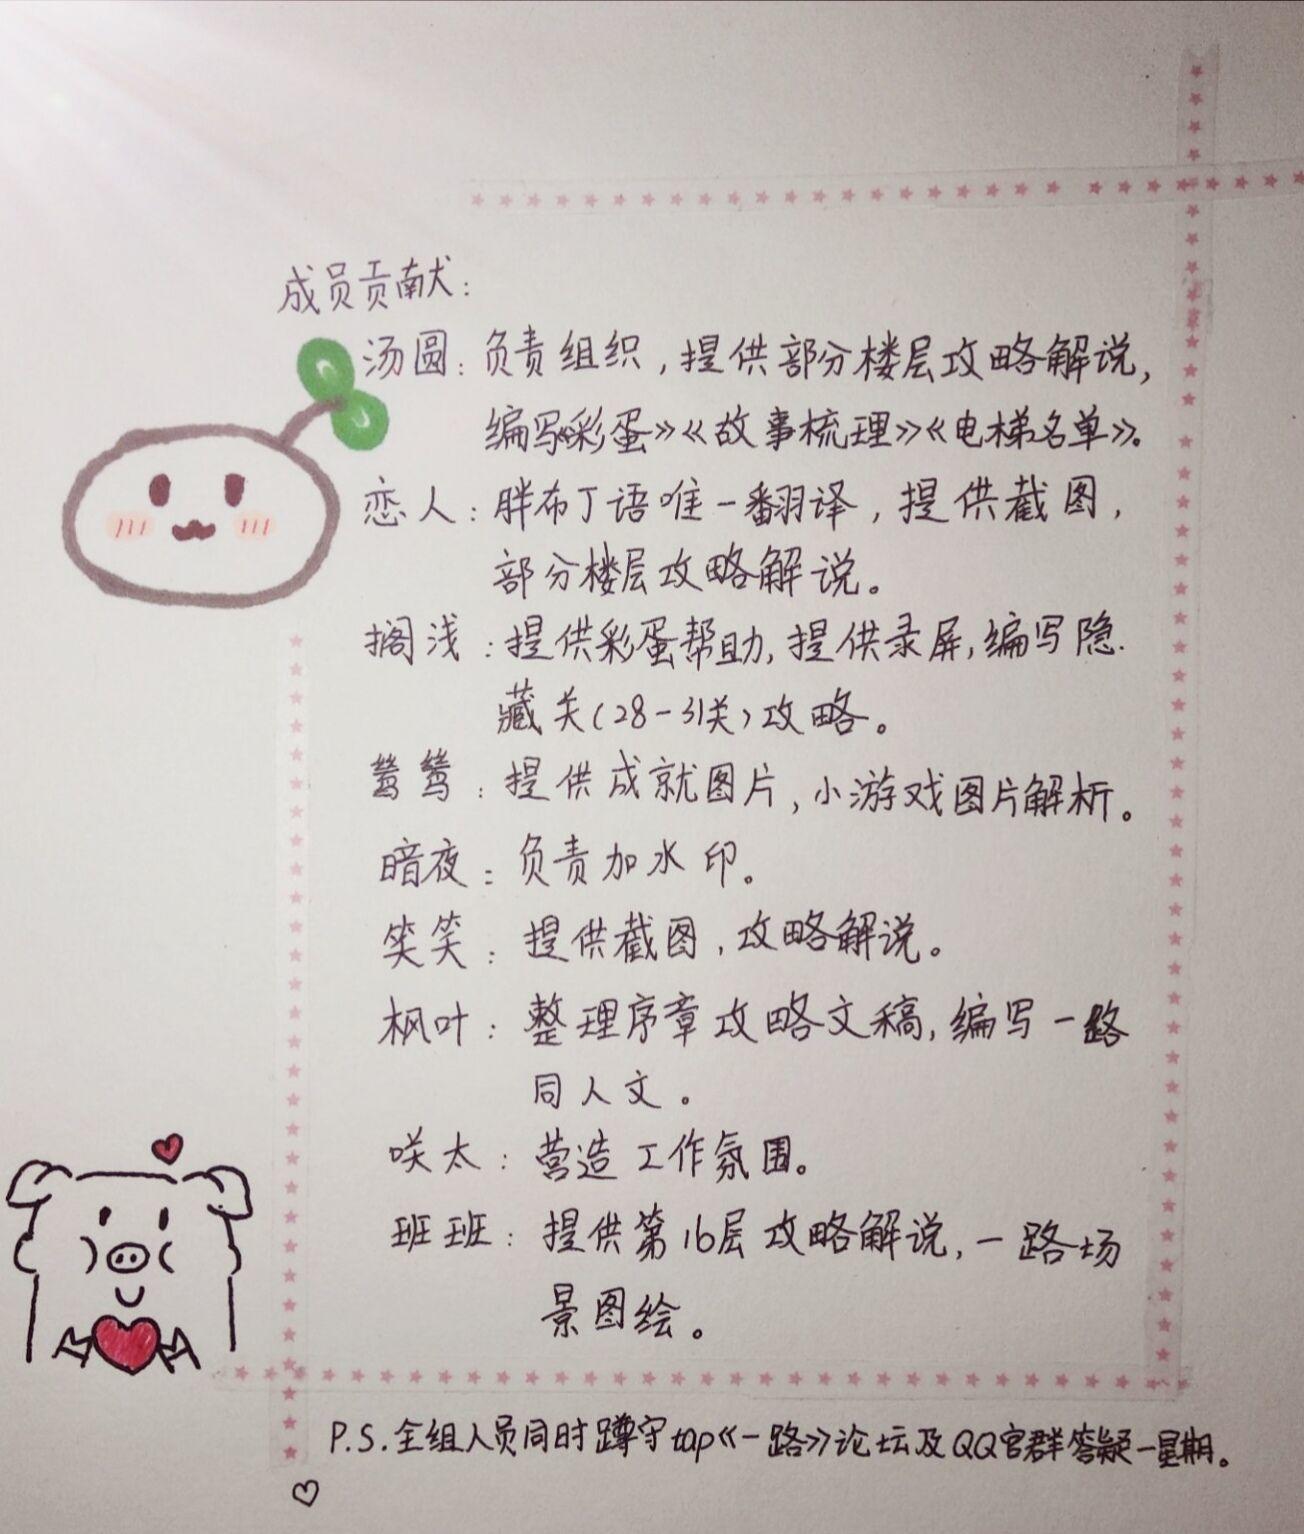 成员贡献：
汤圆：负责组织，提供部分楼层攻略解说，
编写《彩蛋》《故事梳理》《电梯名单》。
恋人：胖布丁语唯一翻译，提供截图，
部分楼层攻略解说。
搁浅：提供彩蛋帮助，提供录屏，编写隐
藏关(28-31关)攻略。
鸶鸶：提供成就图片，小游戏图片解析。
暗夜：负责加水印。
笑笑：提供截图，攻略解说。
枫叶：整理序章攻略文稿，编写一路
同人文。
咲太：营造工作氛围。
班班：提供第16层攻略解说，一路场
景图绘。
P.S.全组人员同时蹲守tap《一路》论坛及QQ官群答疑一星期。